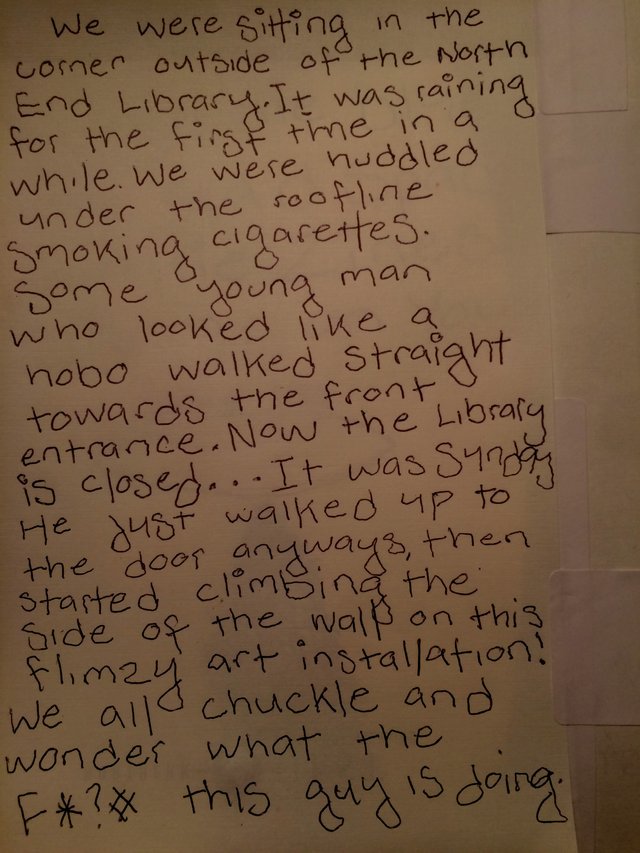 We were sitting in the
corner outside of the North
End Library. It was raining
for the first time in a
while. We were huddled
under the roofline
smoking cigarettes.
Some young man
who looked like a
hobo walked straight
towards the front
entrance. Now the Library
is closed... It was Sunday
He just walked up to
the door anyways, then
started climbing the
side of the wall on this
flimzy art installation!
We all chuckle and
wonder what the
F*?# this guy is doing.